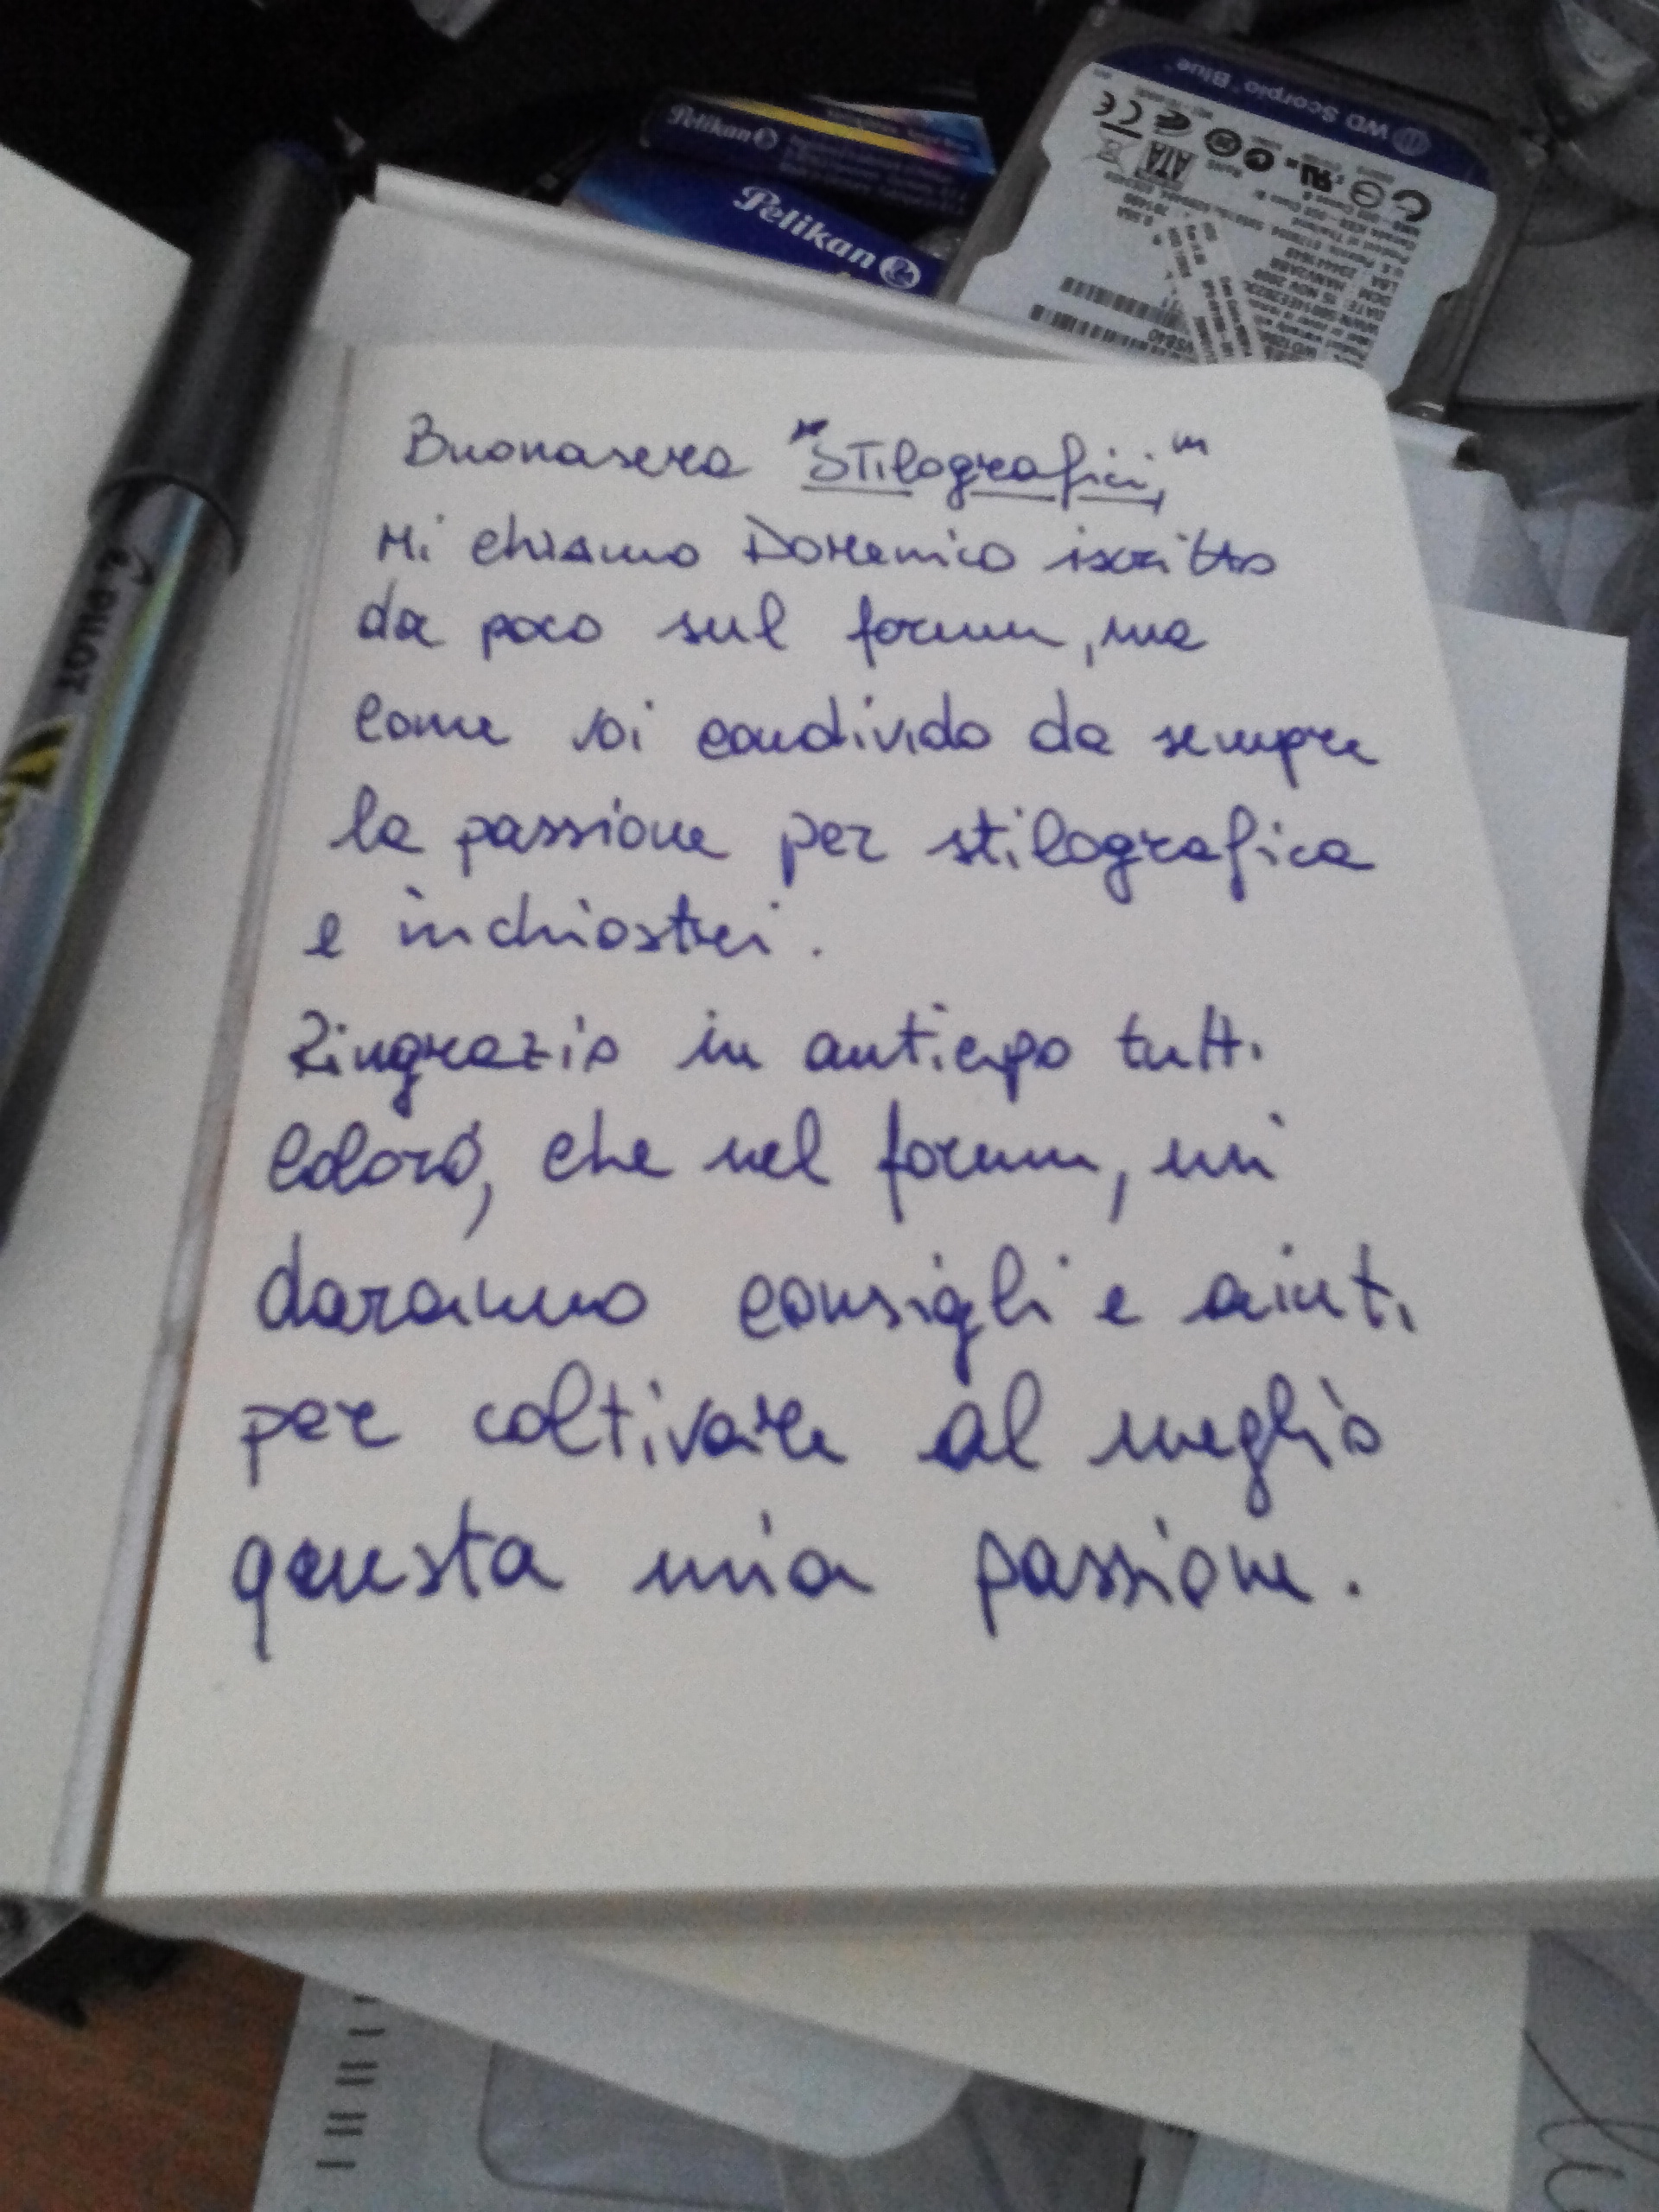 Pelikan
Pelikan
WD Scorpio Blue
SATA
PILOT
Buonasera "Stilografici,"
Mi chiamo Domenico iscritto
da poco sul forum, ma
come voi condivido da sempre
la passione per stilografica
e inchiostri.
Ringrazio in anticipo tutti
coloro, che nel forum, mi
daranno consigli e aiuti
per coltivare al meglio
questa mia passione.